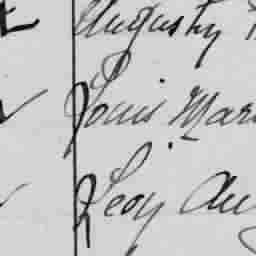 Augustin
Louis Mar
Léon Au